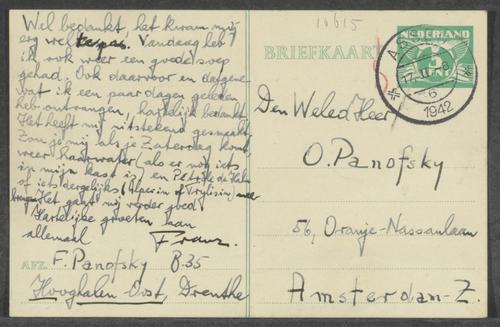 Wel bedankt, het kwam mij
erg wel te pas. Vandaag heb
ik ook weer een goede soep
gehad. Ook daarvoor en datgene
wat ik een paar dagen geleden
heb ontvangen, hartelijk bedankt.
Het heeft mij uitstekend gesmaakt.
Zou je mij als je Zaterdag komt
weer haarwater (als er nog iets
in mijn kast is) en Petrole de Hahn
of iets dergelijks (Alperin of Trylisin) mee
brengen. Het gaat mij verder goed
Hartelijke groeten aan
allemaal Franz.
AFZ. F. Panofsky B.35
Hooghalen-Oost, Drenthe
10615
BRIEFKAART
NEDERLAND
5
CENT
17. II
6
1942
Den Weled. Heer
O. Panofsky
56, Oranje-Nassaulaan
Amsterdam-Z.